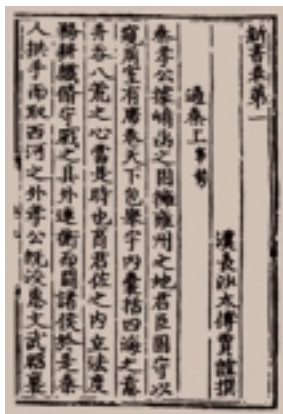 新書卷第一
漢長沙太傅賈誼撰
過秦上事勢
秦孝公據崤函之固擁雍州之地君臣固守以
窺周室有席卷天下包舉宇內囊括四海之意
并吞八荒之心當是時也商君佐之內立法度
務耕織脩守戰之具外連衡而鬭諸侯於是秦
人拱手而取西河之外孝公既沒惠文武昭蒙